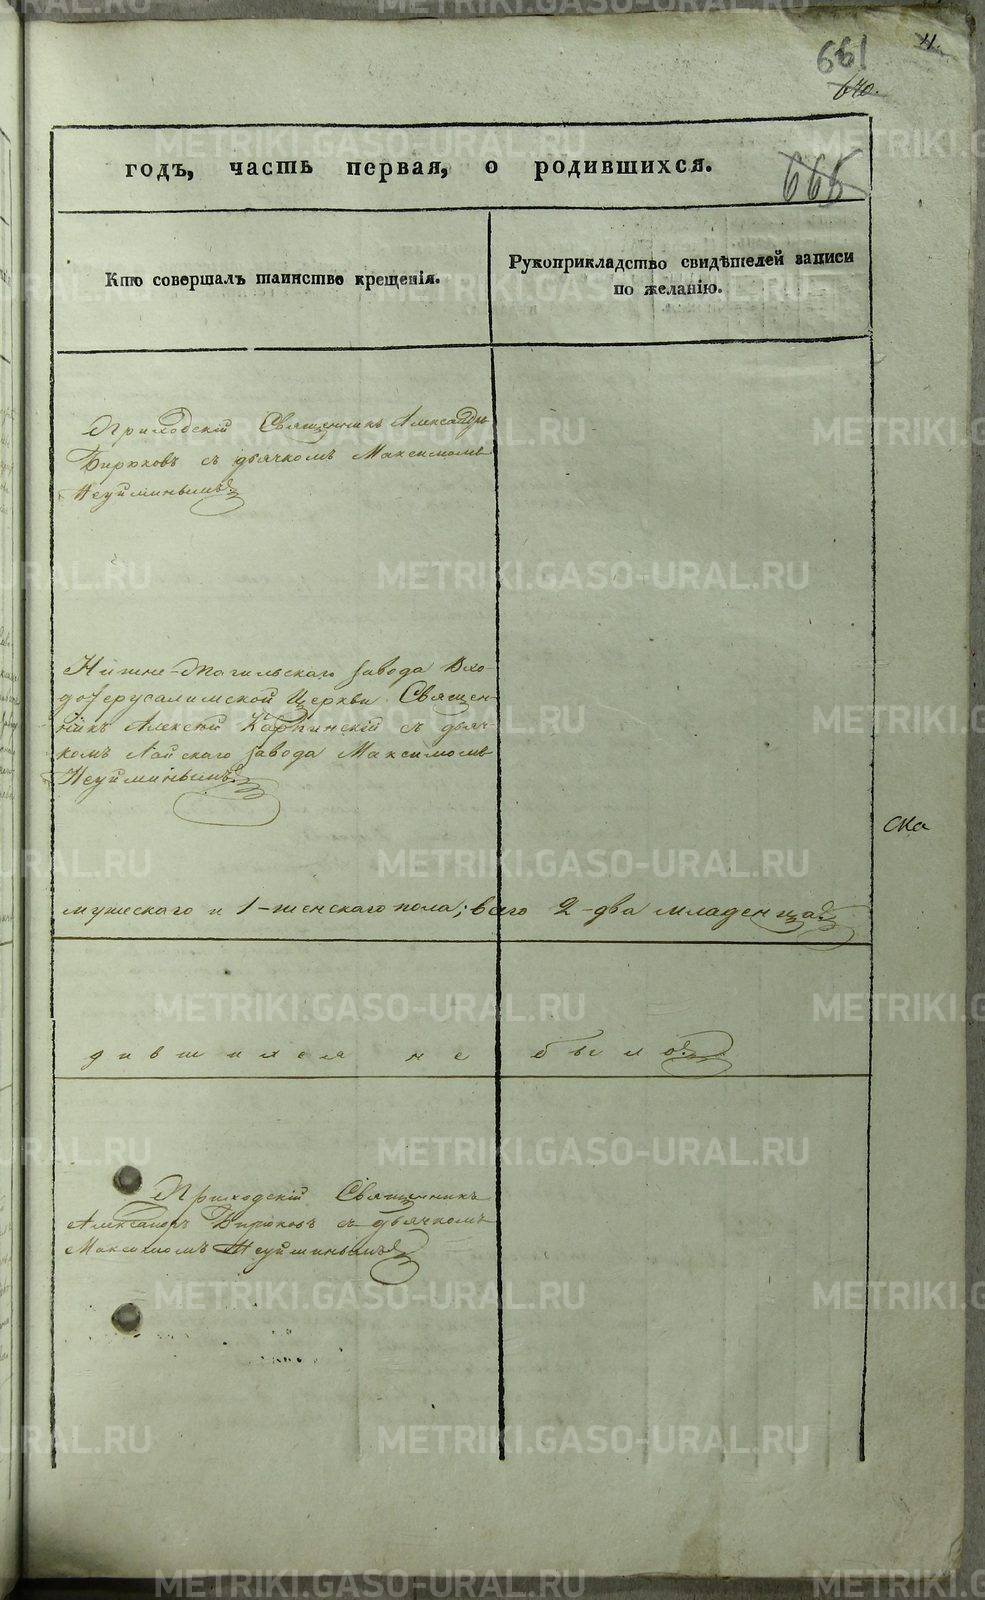 4.
661
640.
665
годъ, часть первая, о родившихся.
Кто совершалъ таинство крещенія.
Рукоприкладство свидѣтелей записи
по желанію.
Приходскій Священникъ Александръ
Бирюковъ съ дьячкомъ Максимомъ
Неуйминымъ
Нижне-Тагильскаго завода Вхо-
доІерусалимской Церкви Священ-
никъ Алексѣй Карпинскій съ дьяч-
комъ Лайскаго завода Максимомъ
Неуйминымъ
Ска
мужескаго и 1-женскаго пола; всего 2-два младенца
дившихся не было.
Приходскій Священникъ
Александръ Бирюковъ съ дьячкомъ
Максимомъ Неуйминымъ
METRIKI.GASO-URAL.RU